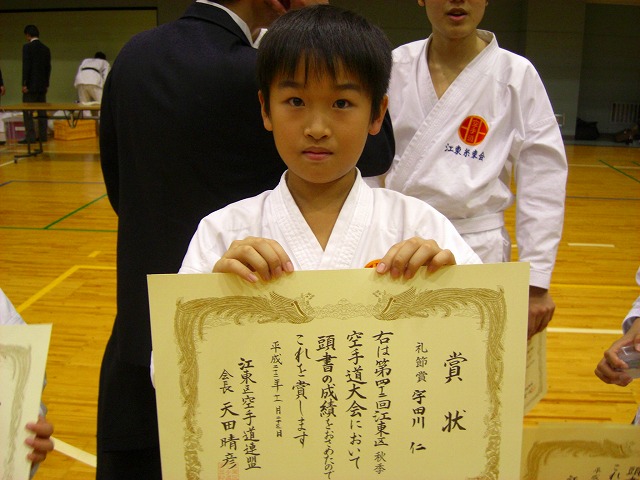 賞状
礼節賞 宇田川 仁
右は第四十三回江東区秋季
空手道大会において
頭書の成績をおさめたので
これを賞します
平成二十三年十一月二十三日
江東区空手道連盟
会長 天田晴彦
江東糸東会